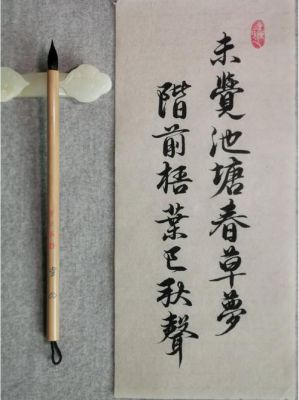 未覺池塘春草夢
階前梧葉已秋聲